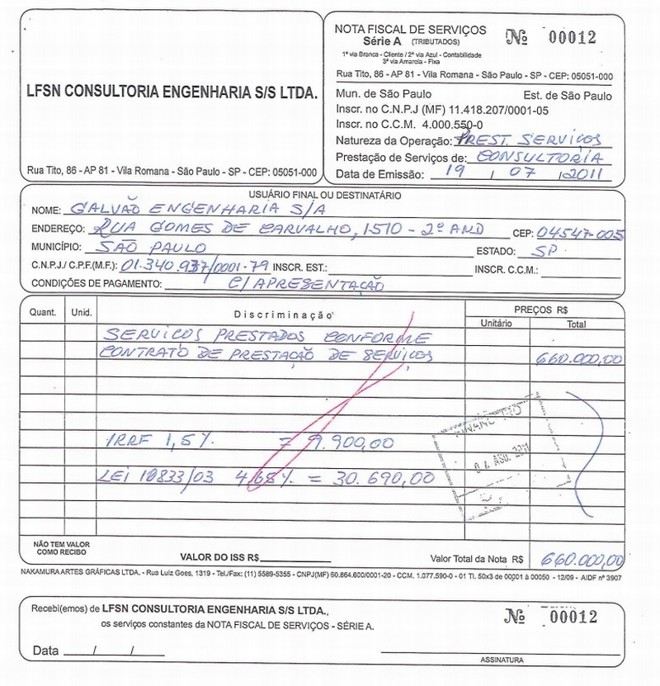 LFSN CONSULTORIA ENGENHARIA S/S LTDA.
Rua Tito, 86 - AP 81 - Vila Romana - São Paulo - SP - CEP: 05051-000
NOTA FISCAL DE SERVIÇOS
Série A (TRIBUTADOS)
Nº 00012
1ª via Branca - Cliente / 2ª via Azul - Contabilidade
3ª via Amarela - Fixa
Rua Tito, 86 - AP 81 - Vila Romana - São Paulo - SP - CEP: 05051-000
Mun. de São Paulo Est. de São Paulo
Inscr. no C.N.P.J (MF) 11.418.207/0001-05
Inscr. no C.C.M. 4.000.550-0
Natureza da Operação: PREST. SERVIÇOS
Prestação de Serviços de: CONSULTORIA
Data de Emissão: 19 / 07 / 2011
USUÁRIO FINAL OU DESTINATÁRIO
NOME: GALVÃO ENGENHARIA S/A
ENDEREÇO: RUA GOMES DE CARVALHO, 1510 - 2º AND CEP: 04547-005
MUNICÍPIO: SÃO PAULO ESTADO: SP.
C.N.P.J./ C.P.F.(M.F.): 01.340.937/0001-79 INSCR. EST.: INSCR. C.C.M.:
CONDIÇÕES DE PAGAMENTO: C/ APRESENTAÇÃO
Quant. Unid. Discriminação PREÇOS R$
Unitário Total
SERVIÇOS PRESTADOS CONFORME
CONTRATO DE PRESTAÇÃO DE SERVIÇOS 660.000,00
IRRF 1,5% = 9.900,00
LEI 10833/03 4,65% = 30.690,00
04 AGO. 2011
NÃO TEM VALOR
COMO RECIBO
VALOR DO ISS R$ Valor Total da Nota R$ 660.000,00
NAKAMURA ARTES GRÁFICAS LTDA. - Rua Luiz Goes, 1319 - Tel./Fax: (11) 5589-5355 - CNPJ(MF) 60.864.600/0001-20 - CCM. 1.077.590-0 - 01 Tl. 50x3 de 00001 à 00050 - 12/09 - AIDF nº 3907
Recebi(emos) de LFSN CONSULTORIA ENGENHARIA S/S LTDA.,
os serviços constantes da NOTA FISCAL DE SERVIÇOS - SÉRIE A.
Nº 00012
Data / /
ASSINATURA